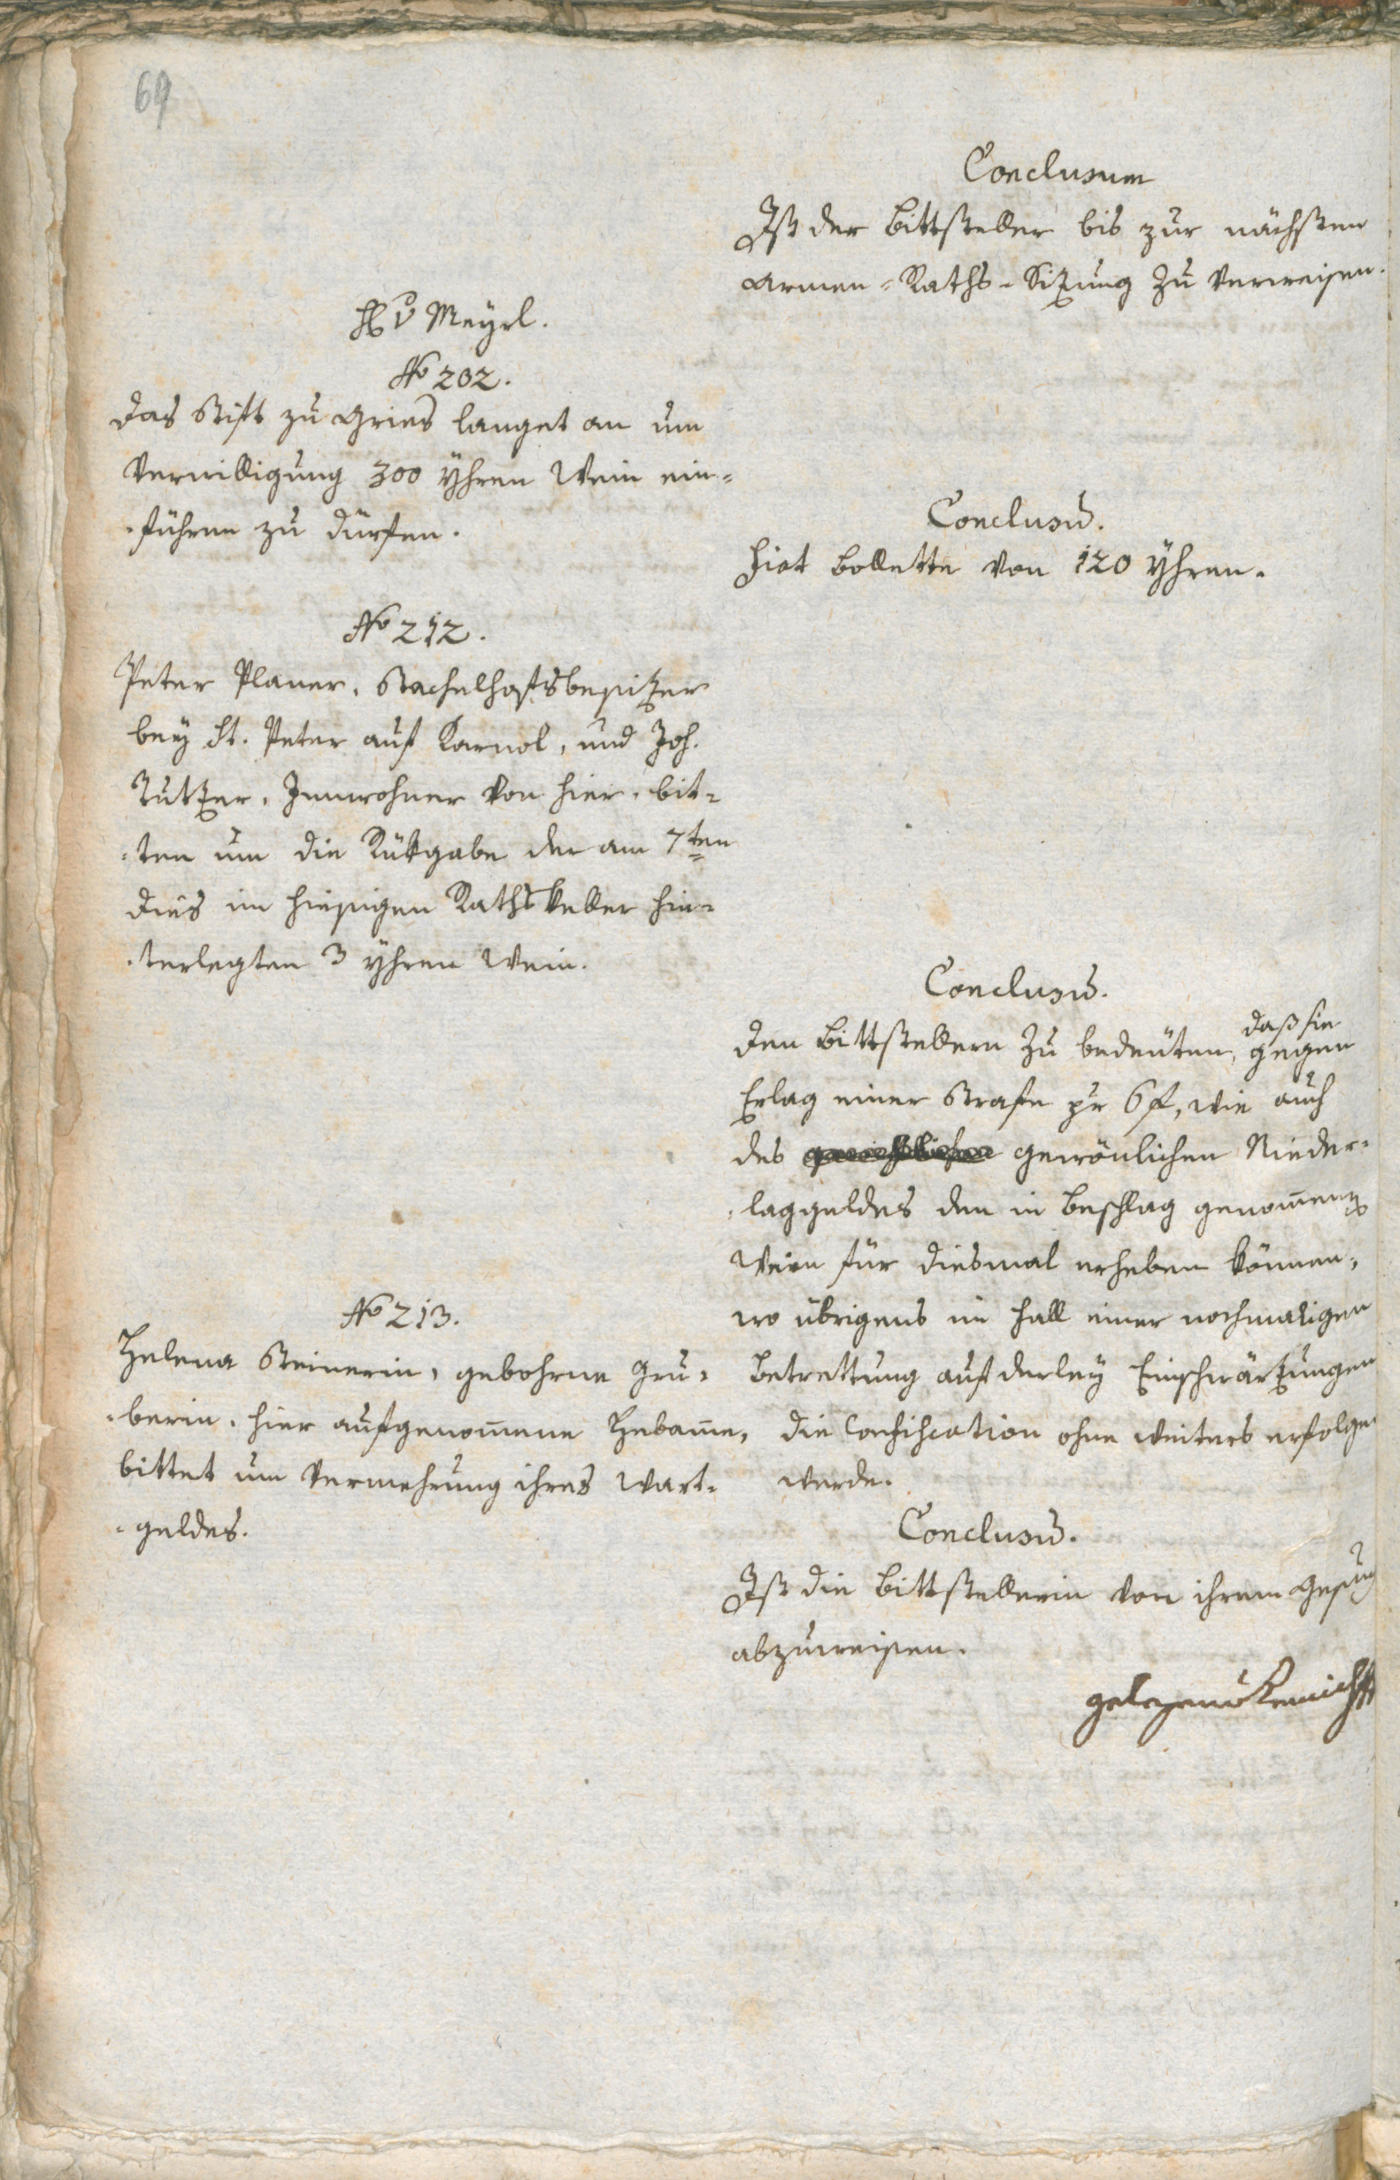 69
Conclusum
Ist der Bittsteller bis zur nächsten
Armen-Raths-Sitzung zu verweisen.
H. v. Meyrl.
No 202.
Das Stift zu Gries langet an um
Verwilligung 300 Yhren Wein ein-
-führen zu dürfen.
Conclusū.
Fiat Bollette von 120 Yhren.
No 212.
Peter Planer, Kachelhofsbesitzer
bey St. Peter auf Karnol, und Joh.
Tutzer, Innwohner von hier, bit-
-ten um die Rükgabe der am 7ten
dies im hiesigen Rathskeller hin-
-terlegten 3 Yhren Wein.
Conclusū.
Den Bittstellern zu bedeuten, daß sie gegen
Erlag einer Strafe pr 6 f, wie auch
des gewönlichen Nieder-
-laggeldes den in Beschlag genom̄enen
Wein für diesmal erheben können,
wo übrigens im Fall einer nochmaligen
Betrettung auf derley Einschwärzungen
die Confiscation ohne weiters erfolgen
werde.
No 213.
Helena Steinerin, gebohrne Gru-
-berin, hier aufgenom̄ene Hebam̄e,
bittet um Vermehrung ihres Wart-
-geldes.
Conclusū.
Ist die Bittstellerin von ihrem Gesuch
abzuweisen.